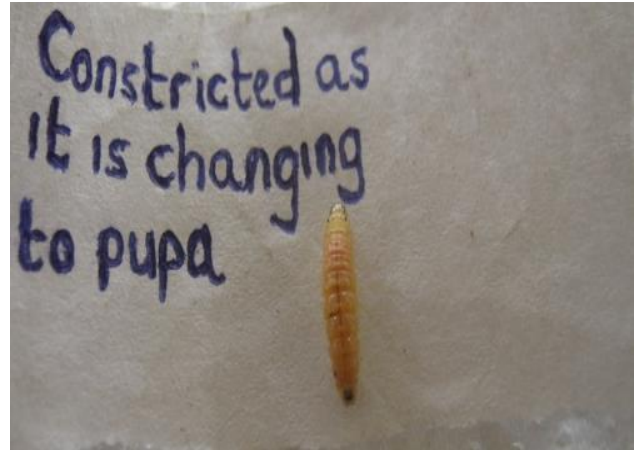 Constricted as
it is changing
to pupa